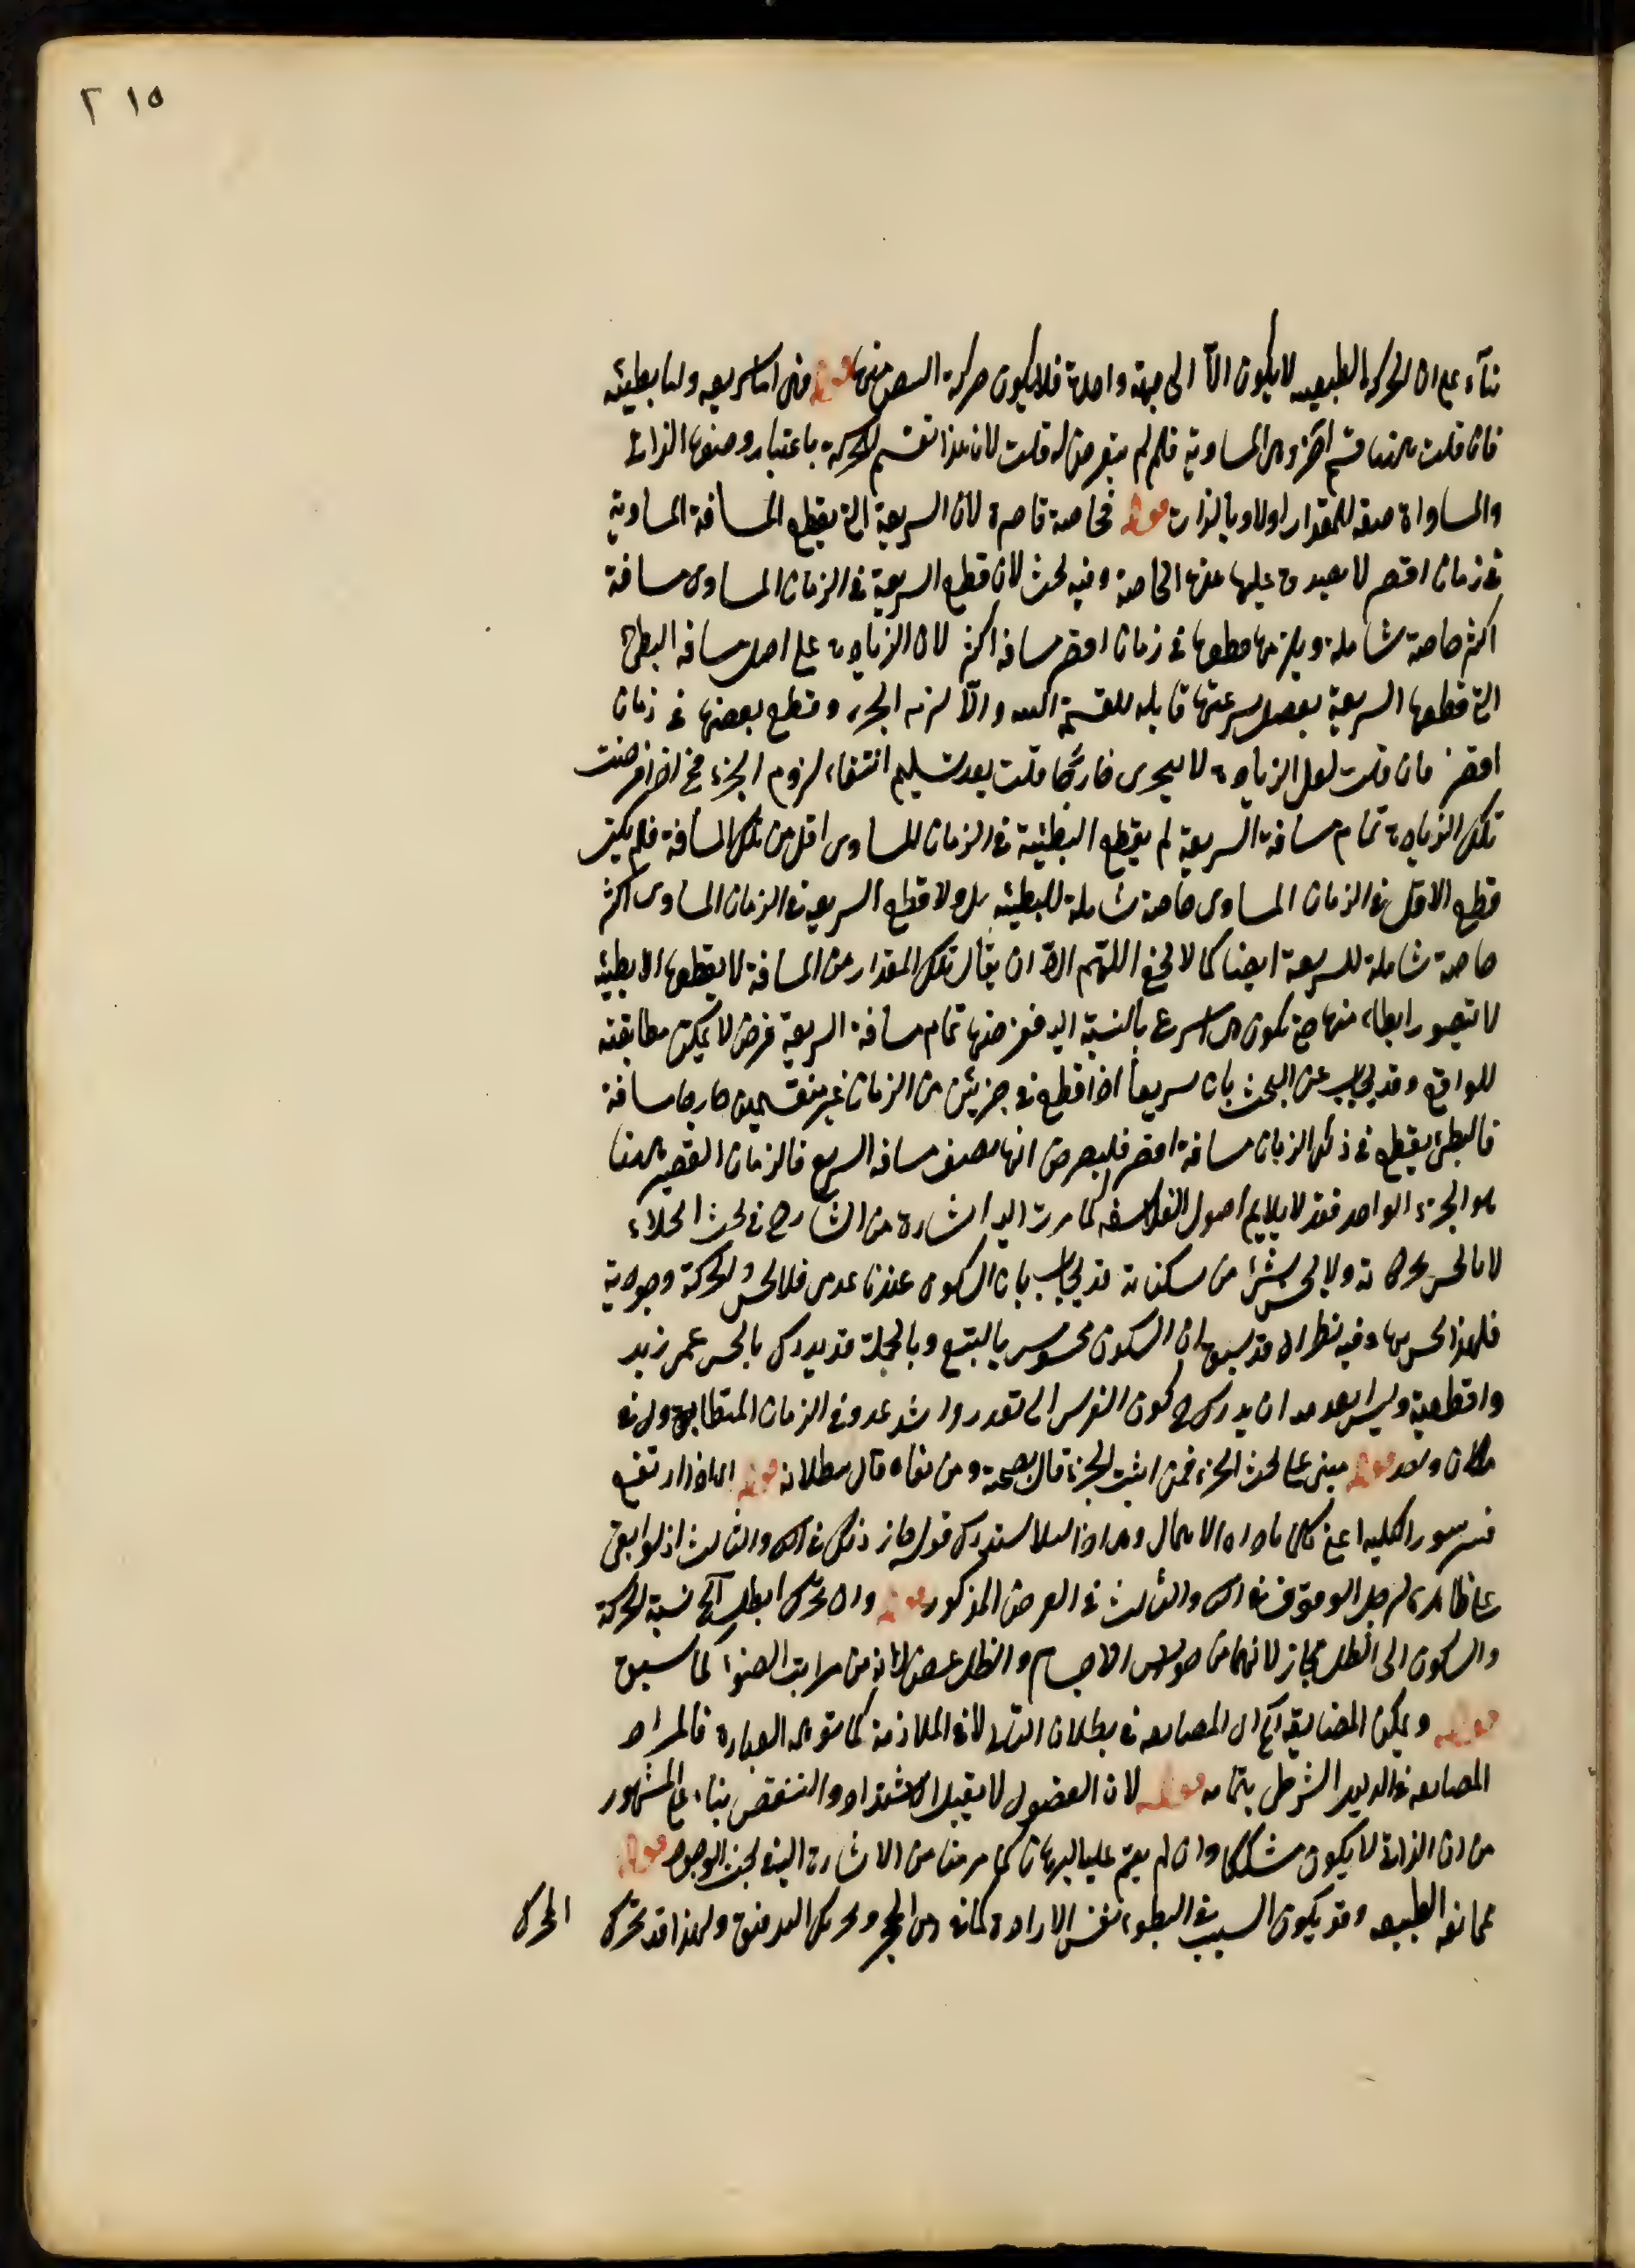 ٢١٥
بناء على ان الحركة الطبيعية لا يكون الّا الى جهة واحدة فلا يكون حركة النبض منها قوله فهى اما سريعه واما بطيئه
فان قلت ههنا قسم آخر وهى المساوية فلم لم يتعرض له قلت لان هذا تقسيم للحركة باعتبار وصفها الذاتى
والمساواة صفه للمقدار اولا وبالذات قوله فخاصة قاصرة لان السريعة التى يقطع المسافة المساوية
فى زمان اقصر لا يصدق عليها هذه الخاصة وفيه بحث لان قطع السريعة فى الزمان المساوى مسافة
اكثر خاصة شاملة ويلزمها قطعها فى زمان اقصر مسافة اكثر لان الزيادة على اصل مسافه البطى
التى قطعها السريعة بفضل سرعتها قابله للقسمة البتة والّا لزم الجزء وقطع بعضها فى زمان
اقصر فان قلت لعل الزيادة لا يتجزى خارجا قلت بعد تسليم انتفاء لزوم الجزء ح اذا فرضت
تلك الزيادة تمام مسافة السريعة لم يقطع البطيئة فى الزمان المساوى اقل من تلك المسافة فلم يكن
قطع الاقل فى الزمان المساوى خاصة شاملة للبطيئه بل ولا قطع السريعه فى الزمان المساوى اكثر
خاصة شاملة للسريعة ايضا كما لا يخفى اللهم الّا ان يقال تلك المقدار من المسافة لا يقطعها الا بطيئه
لا يتصور ابطاء منها حتى تكون هى اسرع بالنسبة اليه ففرضها تمام مسافة السريعة فرض لا يمكن مطابقته
للواقع وقد يجاب عن البحث بان سريعا اذا قطع فى جزئين من الزمان غير منقسمين خارجا مسافة
فالبطئ يقطع فى ذلك الزمان مسافة اقصر فليفرض انها نصف مسافة السريع فالزمان القصير ههنا
هو الجزء الواحد فقد لا يلايم اصول الفلاسفه كما مرت اليه اشارة من الشارح فى بحث الخلاء
لا يحس بحركاته ولا يحس بشئ من سكناته قد يجاب بان السكون عندنا عدمى فلا يحس والحركة وجودية
فلهذا يحس بها وفيه نظر اذ قد سبق ان السكون محسوس بالتبع وبالجملة قد يدرك بالحس عمى زيد
واقطعية وليس ببعد ان يدرك كون الفرس الى تعدر واشد عدو فى الزمان المتطابق وله فى
مكان واحد قوله مبنى على بحث الجزء فمن اثبت الجزء قال بصحة ومن نفاه قال ببطلانه قوله اذا ارتفع
فسر سور الكليه اعنى كلما باداة الاهمال وهى اذا لئلا يستدرك قوله جاز ذلك فى الثانى والثالث اذ لو ابقى
على ظاهره لم يصل الوقوف فى الثانى والثالث فى الفرض المذكور قوله وان تحرك الظل الخ نسبة الحركة
والسكون الى الظل مجاز لانهما من خواص الاجسام والظل عرض لانه من مراتب الضوء كما سبق
قوله ويمكن المضايقة الخ اى المضايقه فى بطلان التالى لا فى الملازمة كما يتوهم العبارة فالمراد
المضايقه فى الدليل الشرطى بتمامه قوله لان الفصول لا يقبل الاشتداد والتنقص بناء على المشهور
من ان الذاتى لا يكون مشككا وان لم يقم عليه البرهان كما مر منا من الاشارة اليه فى بحث الوجود قوله
ممانعة الطبيعه وقد يكون السبب فى البطوء نفس الارادة كما فى رمى الحجر وتحريك اليد برفق ولهذا قد تحرك
الحرك